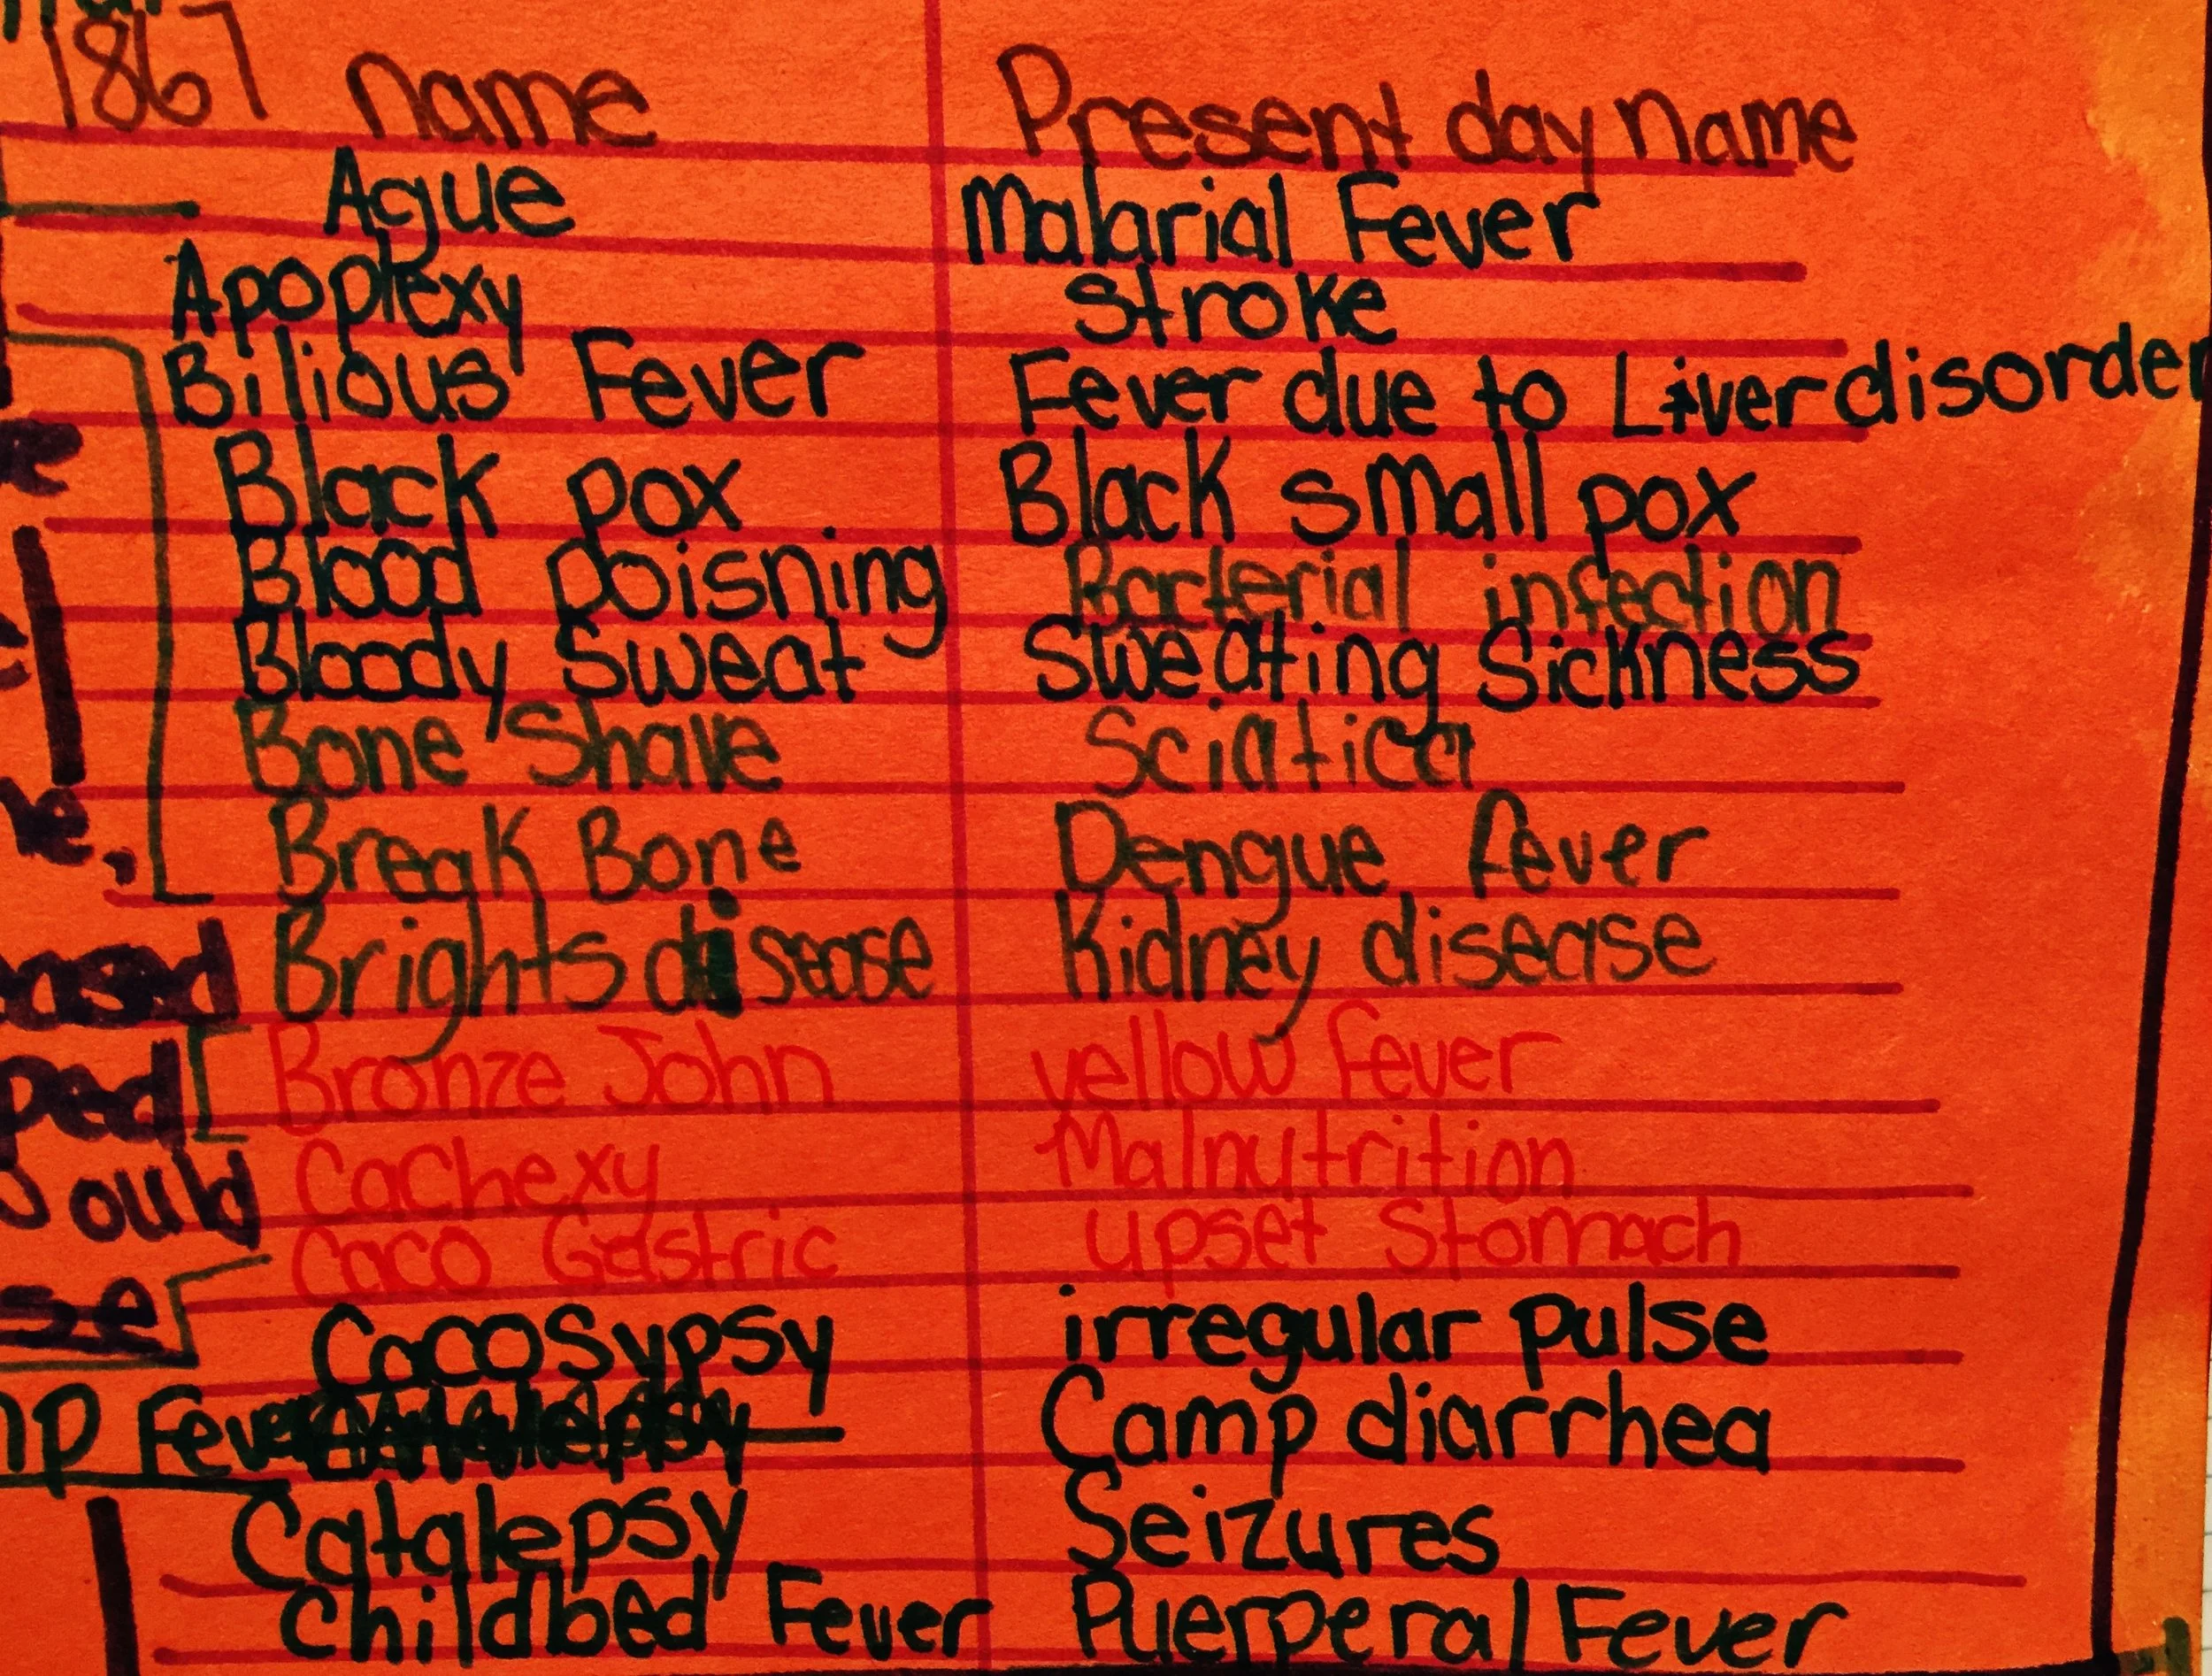 1867 name Present day name
Ague Malarial Fever
Apoplexy stroke
Bilious Fever Fever due to Liver disorder
Black pox Black small pox
Blood poisning Bacterial infection
Bloody Sweat Sweating Sickness
Bone Shave Sciatica
Break Bone Dengue fever
Brights disease Kidney disease
Bronze John yellow fever
Cachexy Malnutrition
Caco Gastric upset Stomach
Cacosypsy irregular pulse
Fever Camp diarrhea
Catalepsy Seizures
Childbed Fever Puerperal Fever